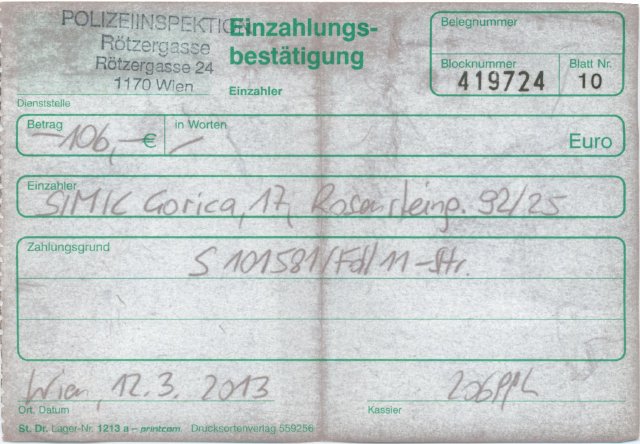 POLIZEIINSPEKTION
Rötzergasse
Rötzergasse 24
1170 Wien
Dienststelle
Einzahlungs-
bestätigung
Einzahler
Belegnummer
Blocknummer
Blatt Nr.
419724
10
Betrag
–106,– €
in Worten
Euro
Einzahler
SIMIC Gorica, 17, Rosensteing. 92/25
Zahlungsgrund
S 101581/Fd/11-Str.
Wien, 12.3. 2013
Ort. Datum
Kassier
St. Dr. Lager-Nr. 1213 a – printcom. Drucksortenverlag 559256